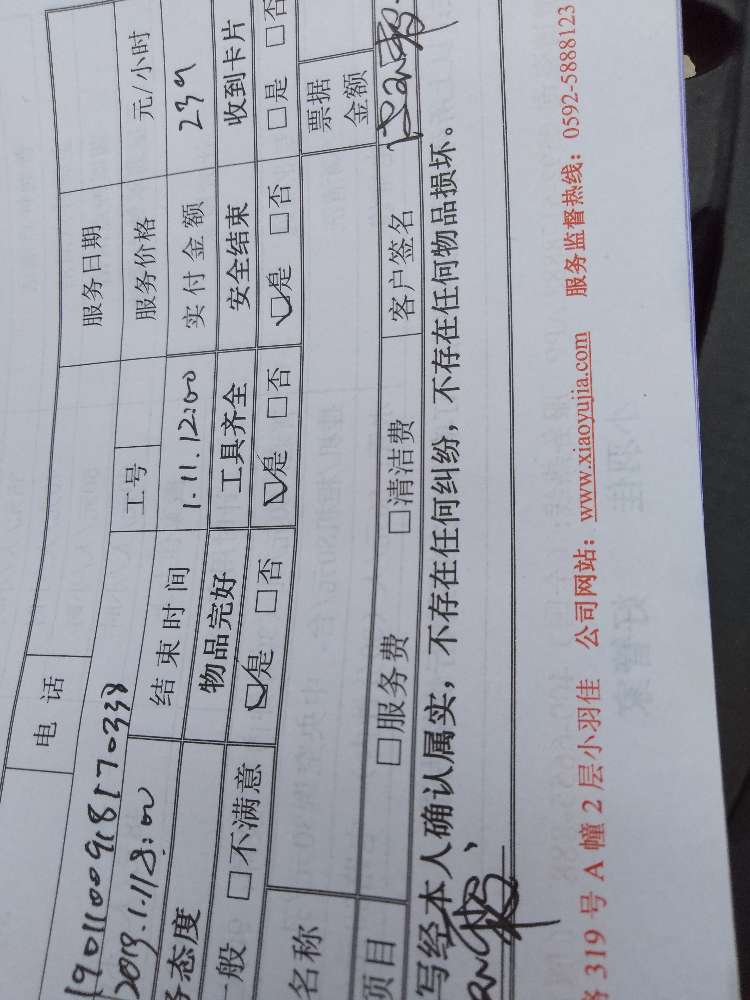 电话 服务日期
19011009185170338 工号 服务价格 元/小时
2019.1.11 8:00 结束时间 1.11.12:00 实付金额 239
务态度 物品完好 工具齐全 安全结束 收到卡片
一般 □不满意 ☑是 □否 ☑是 □否 ☑是 □否 □是 □否
名称 票据金额
项目 □服务费 □清洁费 客户签名
写经本人确认属实，不存在任何纠纷，不存在任何物品损坏。
319号A幢2层小羽佳 公司网站：www.xiaoyujia.com 服务监督热线：0592-5888123